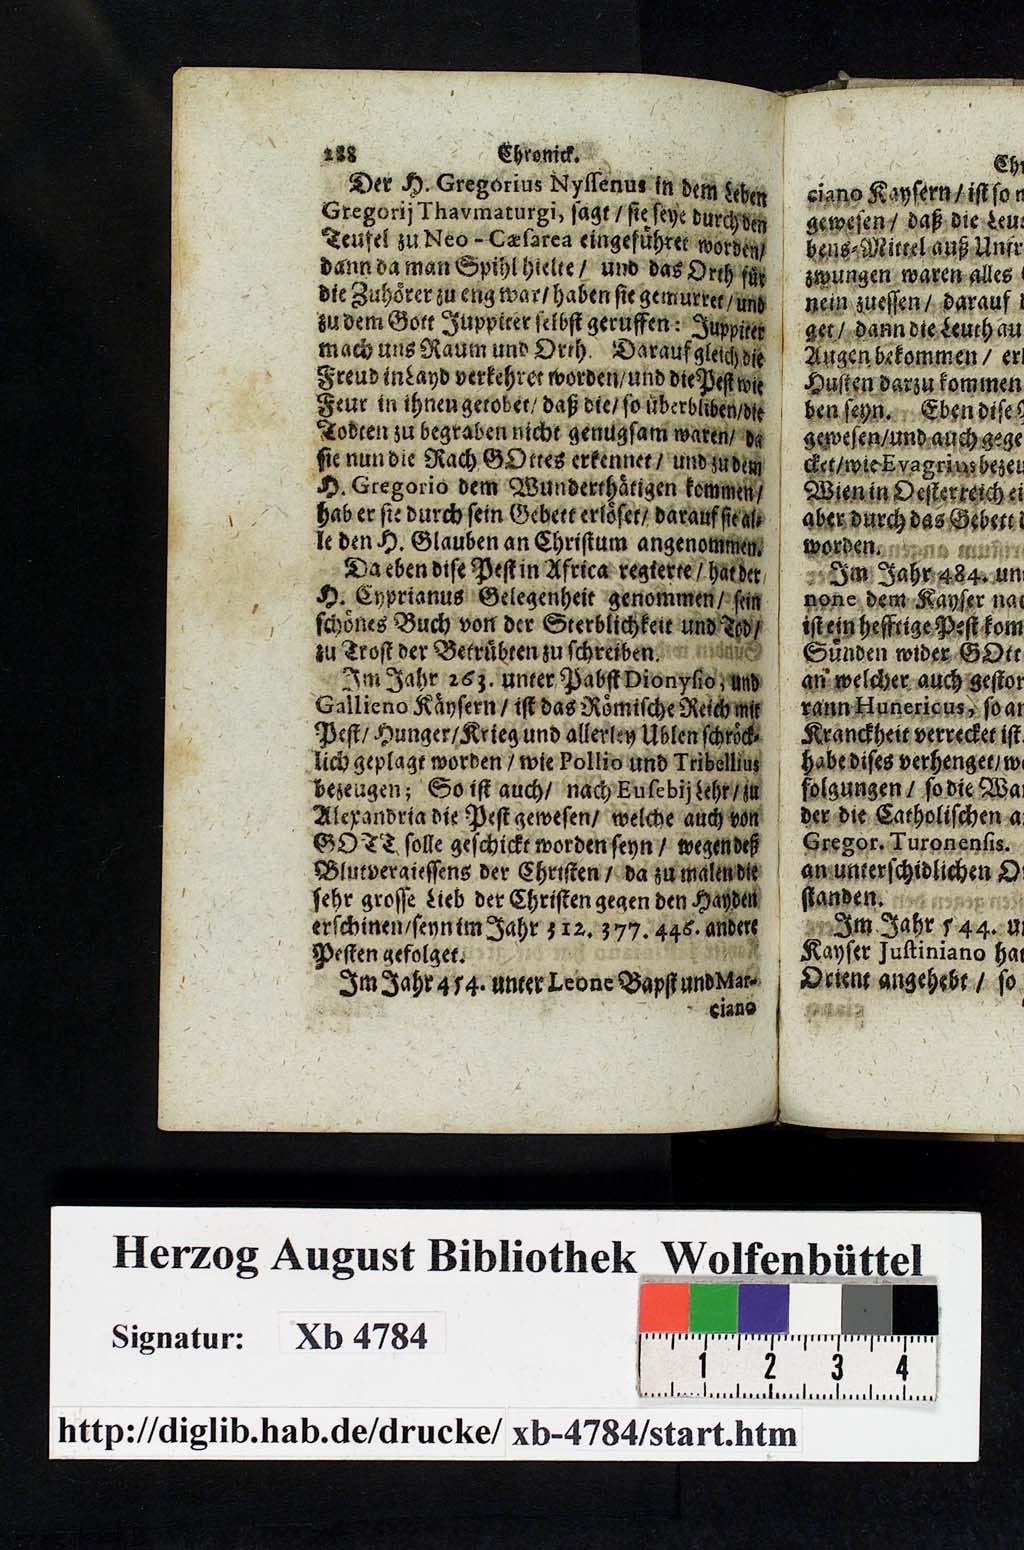 188 Chronick.
Der H. Gregorius Nyſſenus in dem Leben
Gregorij Thavmaturgi, ſagt / ſie ſeye durch den
Teufel zu Neo - Cæſarea eingeführet worden/
dann da man Spihl hielte / und das Orth für
die Zuhörer zu eng war / haben ſie gemurret / und
zu dem Gott Juppiter ſelbſt geruffen: Juppiter
mach uns Raum und Orth. Darauf gleich die
Freud in Layd verkehret worden/ und die Peſt wie
Feur in ihnen getobet/ daß die/ ſo überbliben/die
Todten zu begraben nicht genugſam waren/ da
ſie nun die Rach GOttes erkennet / und zu dem
H. Gregorio dem Wunderthätigen kommen/
hab er ſie durch ſein Gebett erlöſet/ darauf ſie al-
le den H. Glauben an Chriſtum angenommen.
Da eben diſe Peſt in Africa regierte / hat der
H. Cyprianus Gelegenheit genommen / ſein
ſchönes Buch von der Sterblichkeit und Tod/
zu Troſt der Betrübten zu ſchreiben.
Im Jahr 263. unter Pabſt Dionyſio, und
Gallieno Käyſern / iſt das Römiſche Reich mit
Peſt/ Hunger/Krieg und allerley Ublen ſchröck-
lich geplagt worden / wie Pollio und Tribellius
bezeugen; So iſt auch/ nach Euſebij Lehr/ zu
Alexandria die Peſt geweſen/ welche auch von
GOTT ſolle geſchickt worden ſeyn / wegen deß
Blutvergieſſens der Chriſten / da zu malen die
ſehr groſſe Lieb der Chriſten gegen den Hayden
erſchinen/ſeyn im Jahr 312. 377. 446. andere
Peſten gefolget.
Im Jahr 454. unter Leone Bapſt und Mar-
ciano
Chr
ciano Kayſern / iſt ſo
geweſen / daß die Leu
bens-Mittel auß Unfr
zwungen waren alles
nein zueſſen / darauf
get / dann die Leuth au
Augen bekommen / er
Huſten darzu kommen
ben ſeyn. Eben diſe
geweſen/und auch gege
cket/wie Evagrius bezeu
Wien in Oeſterreich ei
aber durch das Gebett
worden.
Im Jahr 484. un
none dem Kayſer nac
iſt ein hefftige Peſt kom
Sünden wider GOtt
an welcher auch geſtor
rann Hunericus, ſo an
Kranckheit verrecket iſt.
habe diſes verhenget/ w
folgungen / ſo die Wa
der die Catholiſchen a
Gregor. Turonenſis.
an unterſchidlichen O
ſtanden.
Im Jahr 544. u
Kayſer Juſtiniano hat
Orient angehebt / ſo
Herzog August Bibliothek Wolfenbüttel
Signatur: Xb 4784
1 2 3 4
http://diglib.hab.de/drucke/ xb-4784/start.htm